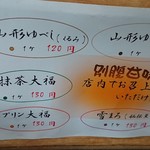 山形ゆべし(くるみ)
1ケ 120円
山形ゆ
1ケ
抹茶大福
1ケ 150円
別腹甘味
店内でお召上
いただけ
プリン大福
1ケ 150円
雪まろ
1ケ 150円